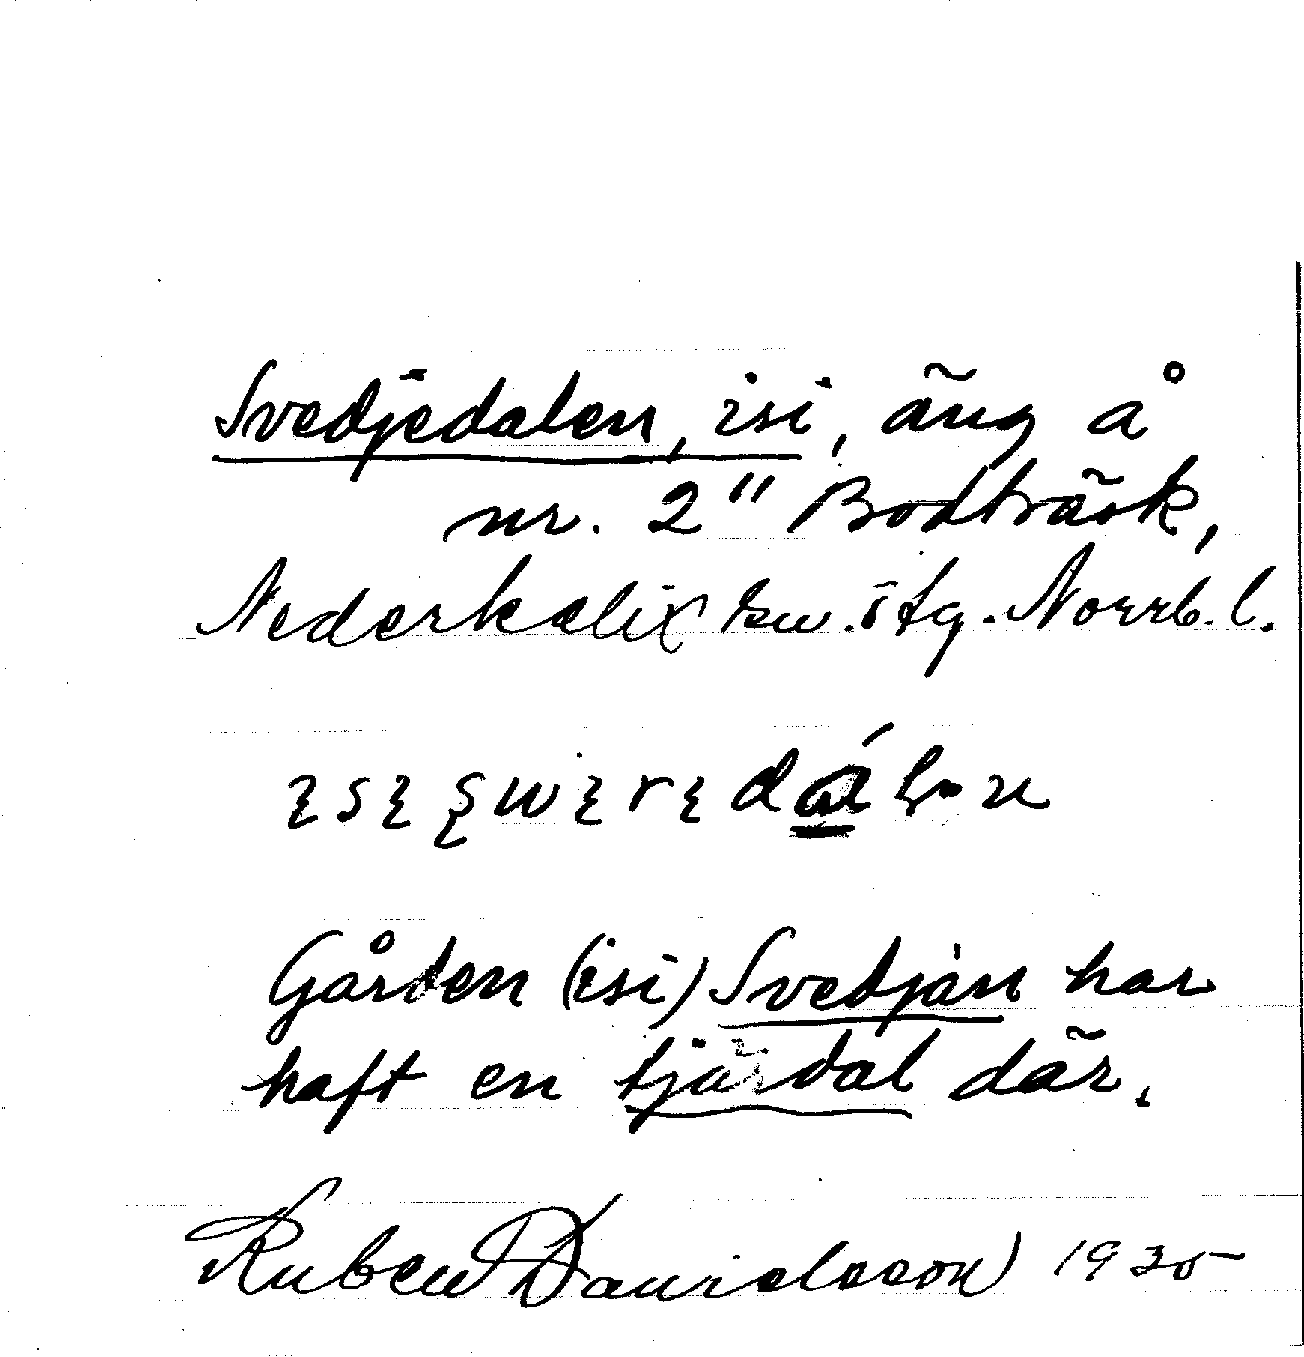 Svedjedalen, isi, äng å
nr. 2" Bodträsk,
Nederkalix sn. ö tg. Norrb. l.
Gården (isi) Svedjan har
haft en tjärdal där.
Ruben Danielsson 1935